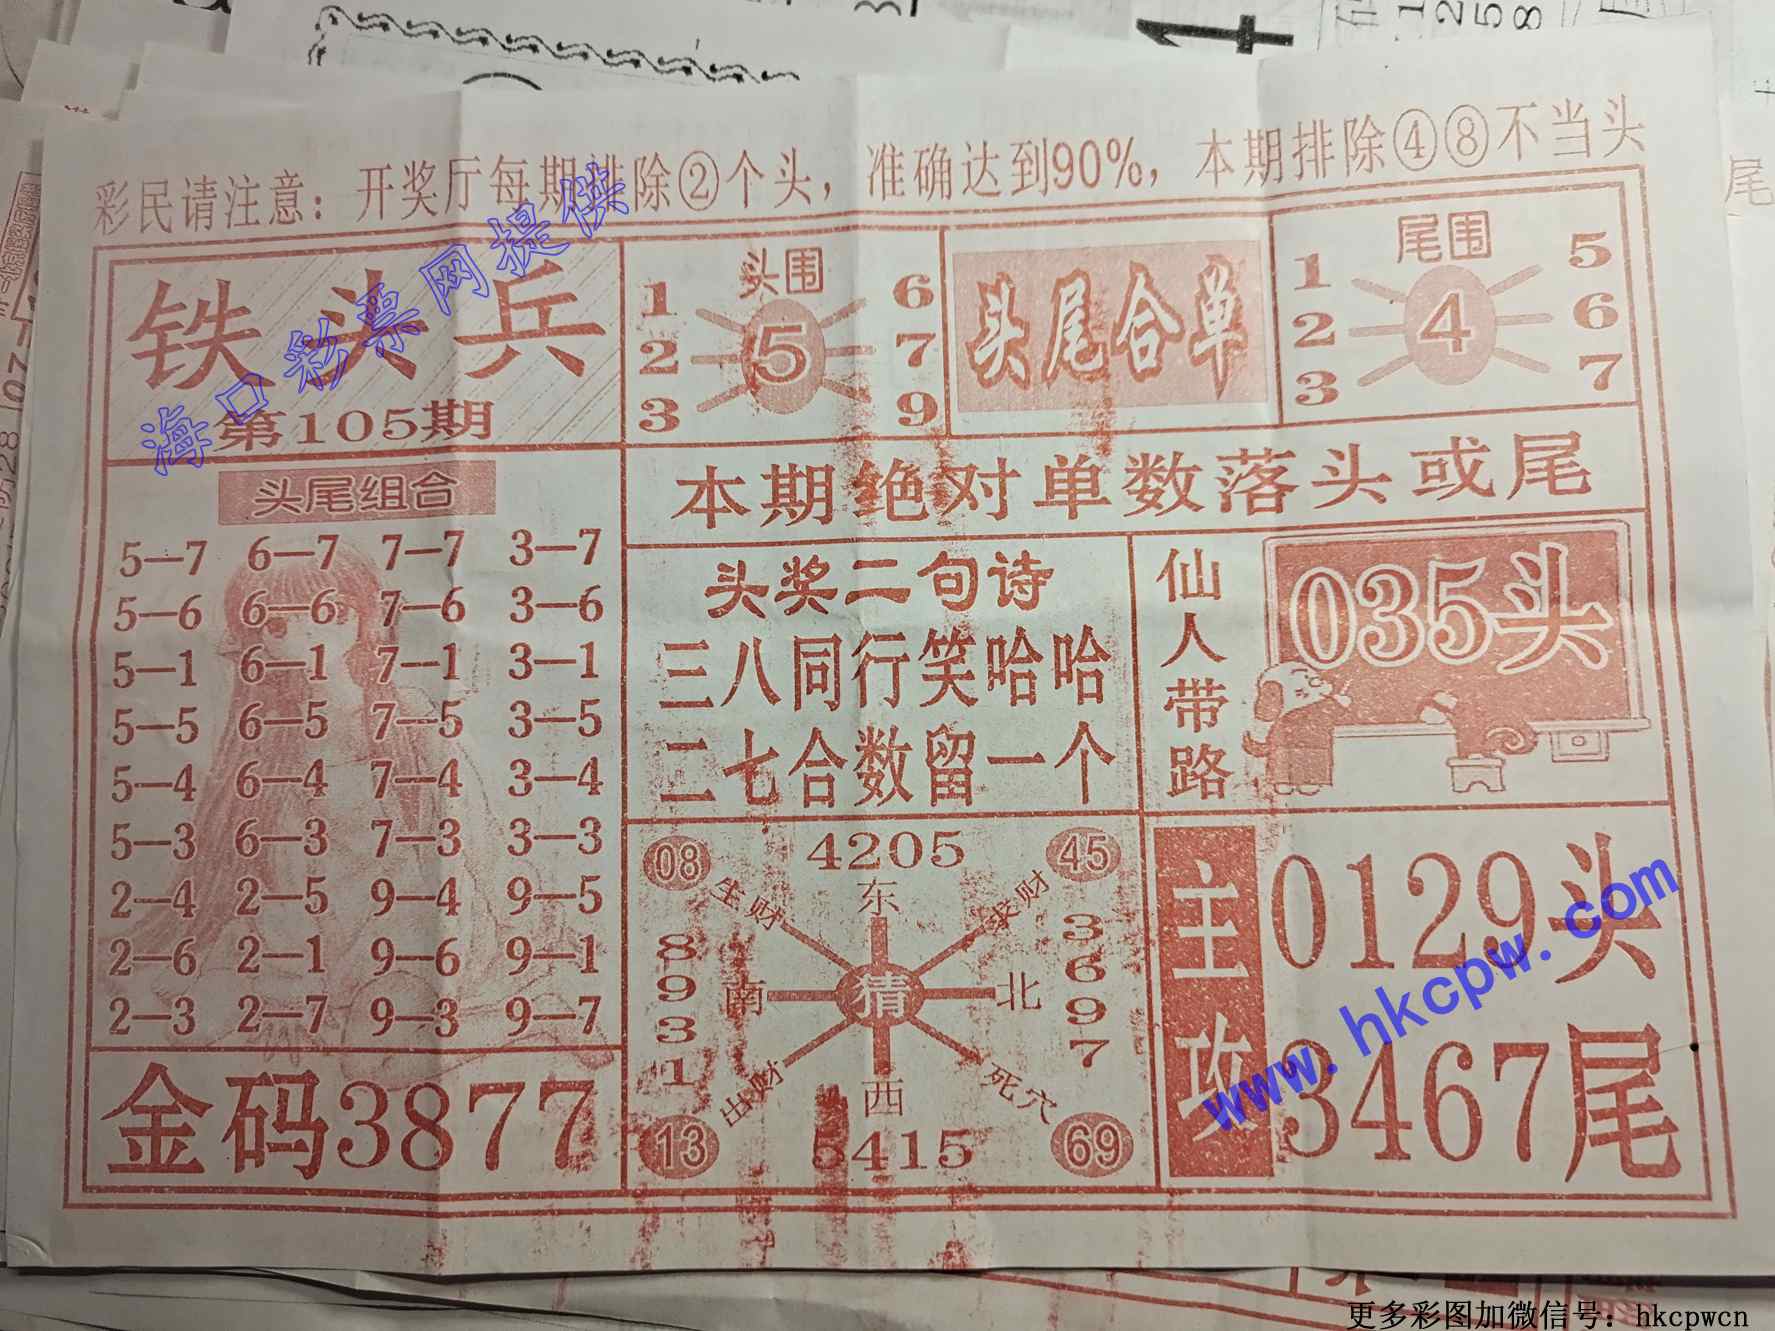 彩民请注意：开奖厅每期排除②个头，准确达到90%，本期排除④⑧不当头
铁头兵
第105期
头围
1 6
2 5 7
3 9
头尾合单
尾围
1 5
2 4 6
3 7
本期绝对单数落头或尾
头尾组合
5—7 6—7 7—7 3—7
5—6 6—6 7—6 3—6
5—1 6—1 7—1 3—1
5—5 6—5 7—5 3—5
5—4 6—4 7—4 3—4
5—3 6—3 7—3 3—3
2—4 2—5 9—4 9—5
2—6 2—1 9—6 9—1
2—3 2—7 9—3 9—7
金码3877
头奖二句诗
三八同行笑哈哈
二七合数留一个
仙人带路
035头
08 4205 45
生财 东 求财
8931 南 猜 北 3697
出财 西 死穴
13 5415 69
主攻
0129头
3467尾
海口彩票网提供
www.hkcpw.com
更多彩图加微信号：hkcpwcn